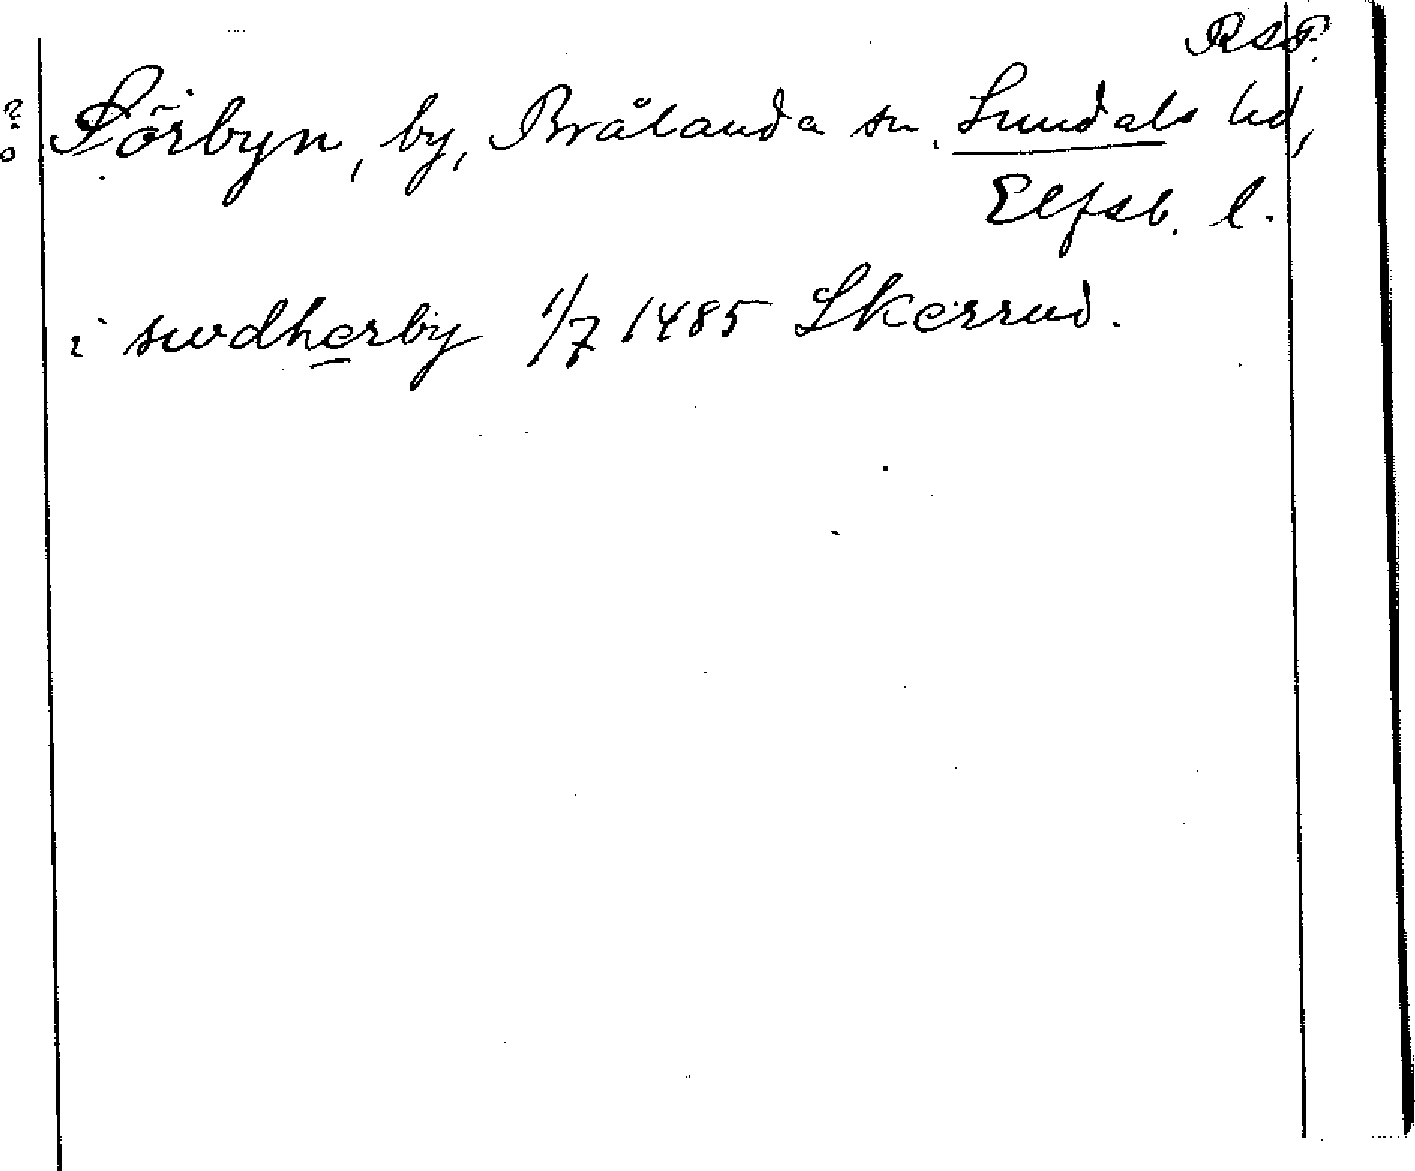 RAP.
? Sörbyn, by, Brålanda sn. Sundals hd,
Elfsb. l.
i swdherby 1/7 1485 Skerrud.